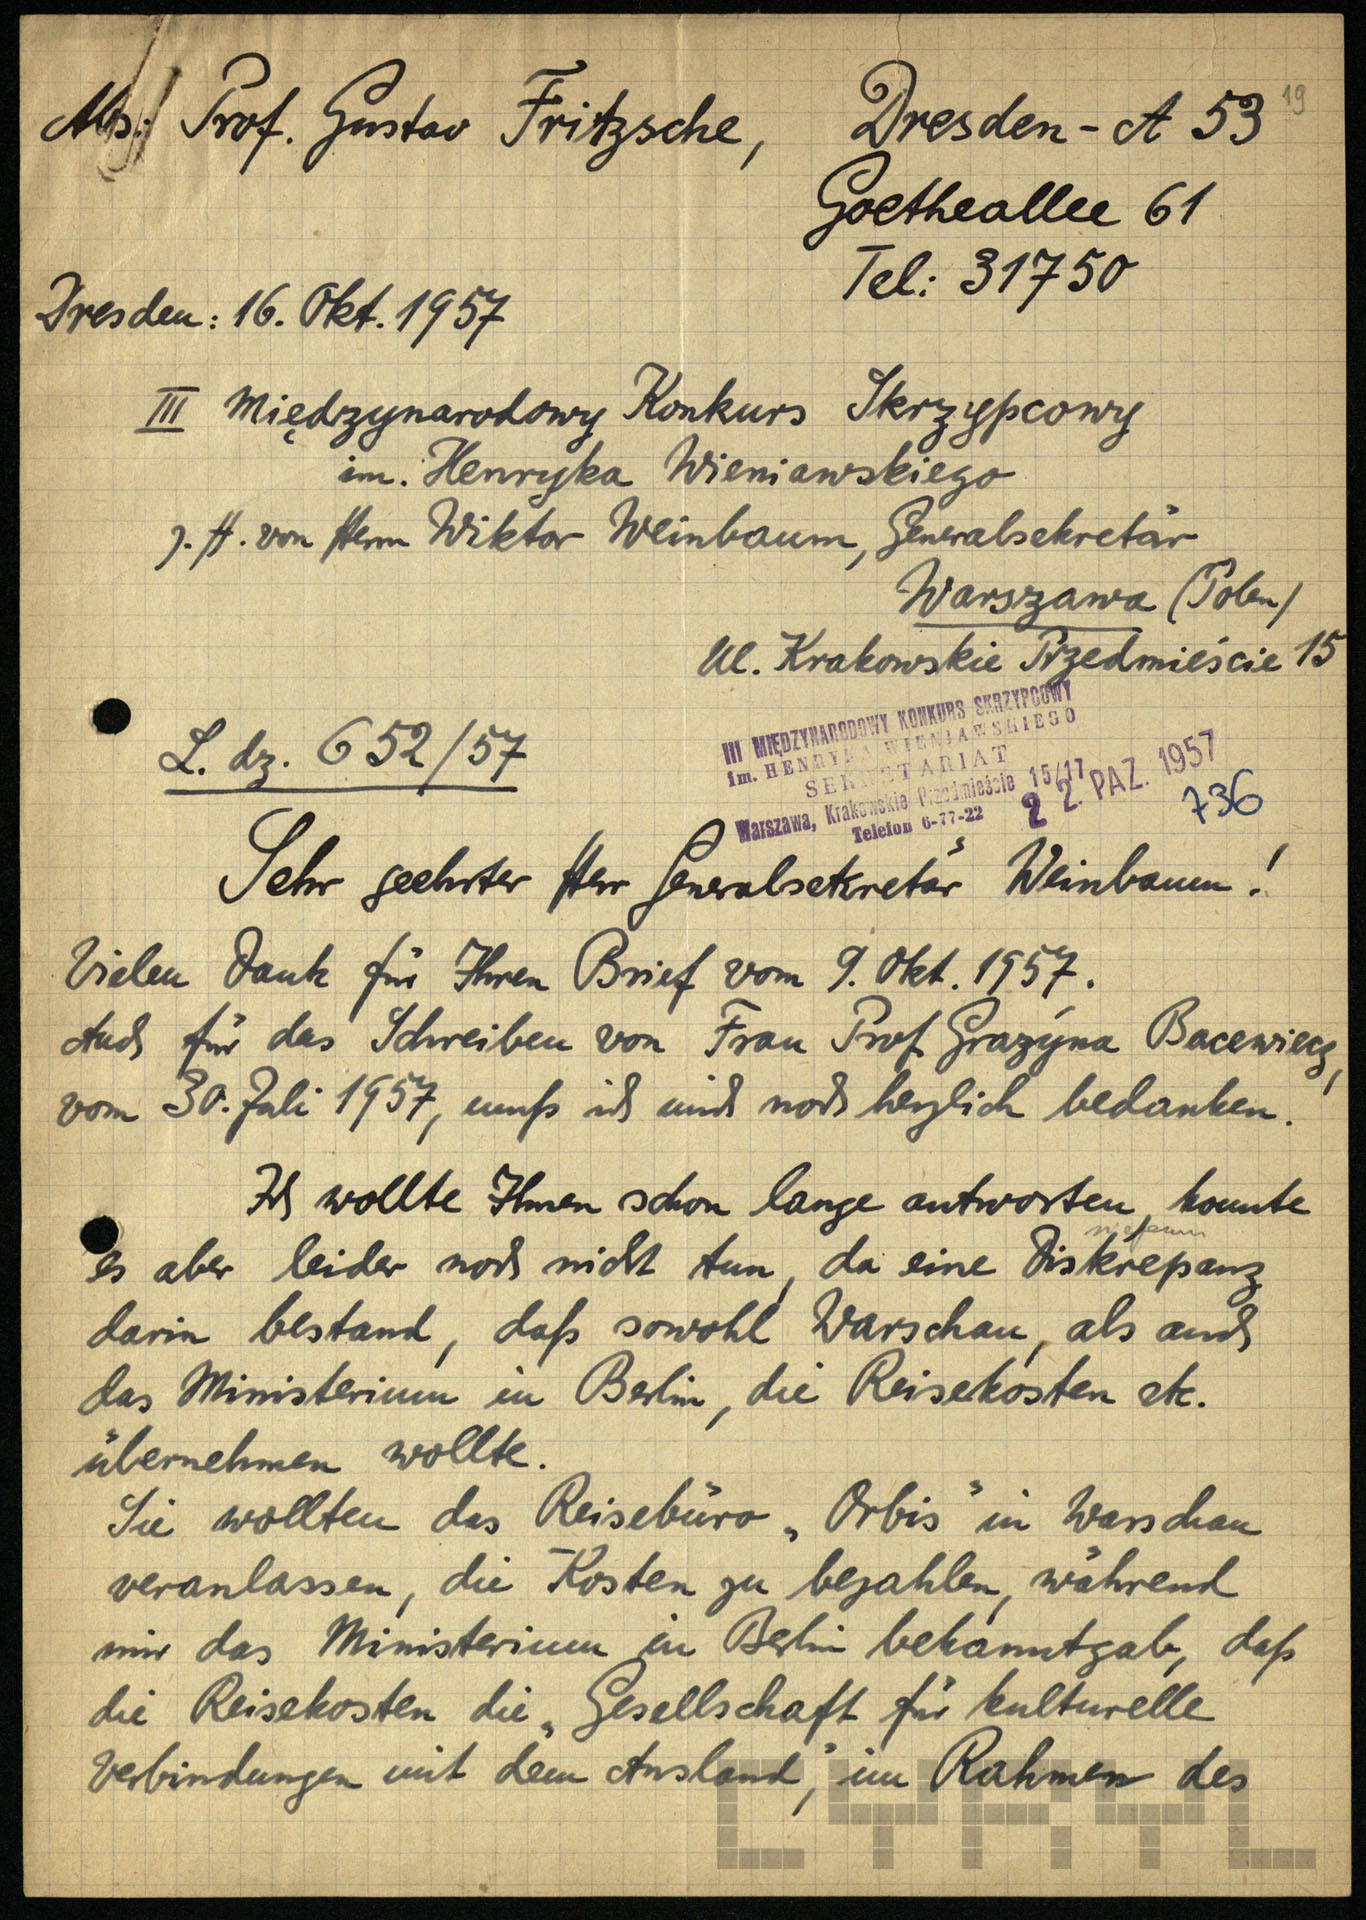 Abs: Prof. Gustav Fritzsche, Dresden-A 53
19
Goetheallee 61
Tel: 31750
Dresden: 16. Okt. 1957
III Międzynarodowy Konkurs Skrzypcowy
im. Henryka Wieniawskiego
z. H. von Herrn Wiktor Weinbaum, Generalsekretär
Warszawa (Polen)
Ul. Krakowskie Przedmieście 15
L. dz. 652/57
III MIĘDZYNARODOWY KONKURS SKRZYPCOWY
im. HENRYKA WIENIAWSKIEGO
SEKRETARIAT
Warszawa, Krakowskie Przedmieście 15/17
Telefon 6-77-22
22. PAZ. 1957
736
Sehr geehrter Herr Generalsekretär Weinbaum!
Vielen Dank für Ihren Brief vom 9. Okt. 1957.
Auch für das Schreiben von Frau Prof. Grazýna Bacewiecz,
vom 30. Juli 1957, muß ich mich noch herzlich bedanken.
Ich wollte Ihnen schon lange antworten, konnte
es aber leider noch nicht tun, da eine Diskrepanz
darin bestand, daß sowohl Warschau, als auch
das Ministerium in Berlin, die Reisekosten etc.
übernehmen wollte.
Sie wollten das Reisebüro „Orbis" in Warschau
veranlassen, die Kosten zu bezahlen, während
mir das Ministerium in Berlin bekanntgab, daß
die Reisekosten die „Gesellschaft für kulturelle
Verbindungen mit dem Ausland", im Rahmen des